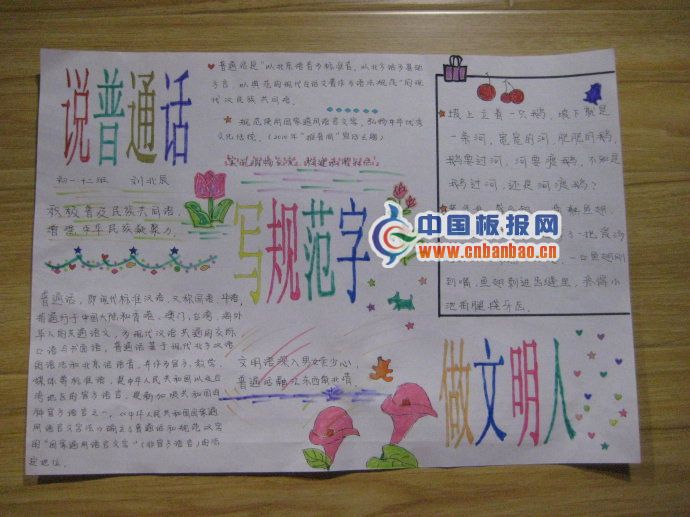 说普通话
初一·十二班 刘北辰
积极普及民族共同语,
增强中华民族凝聚力。
普通话是"以北京语音为标准音,以北方话为基础
方言,以典范的现代白话文著作为语法规范"的现
代汉民族共同语。
规范使用国家通用语言文字,弘扬中华优秀
文化传统。(2010年"推普周"宣传主题)
写规范字
坡上立着一只鹅,坡下就是
一条河,宽宽的河,肥肥的鹅,
鹅要过河,河要渡鹅,不知是
鹅过河,还是河渡鹅?
中国板报网
www.cnbanbao.cn
到嘴,鱼翅刺进齿缝里,疼得小
普通话,即现代标准汉语,又称国语、华语,
普通行于中国大陆和香港、澳门、台湾、海外
华人的共通语文,为现代汉语共通的交际
口语与书面语,普通话基于现代北方汉语
的语法和北京话语音,并作为官方、教学、
媒体等标准语,是中华人民共和国以及台
湾地区的官方语言,是新加坡共和国四
种官方语言之一。《中华人民共和国国家通
用语言文字法》确立了普通话和规范汉字
的"国家通用语言文字"(非官方语言)的法
定地位。
文明语深入男女老少心,
普通话融汇东西南北情。
做文明人